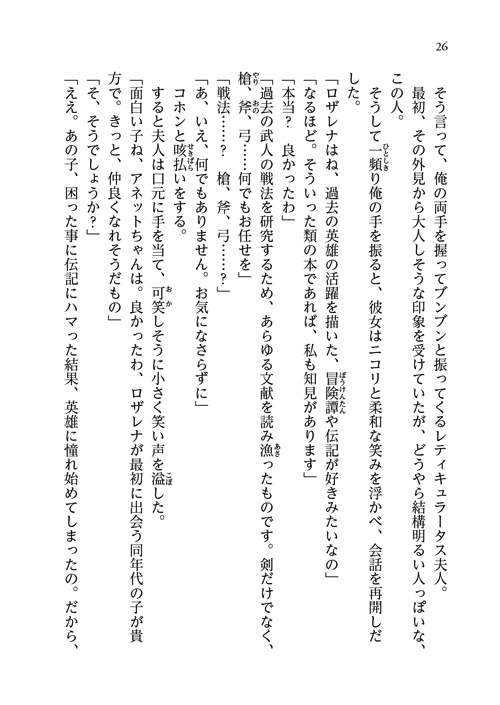 26
そう言って、俺の両手を握ってブンブンと振ってくるレティキュラータス夫人。
最初、その外見から大人しそうな印象を受けていたが、どうやら結構明るい人っぽいな、
この人。
そうして一頻り俺の手を振ると、彼女はニコリと柔和な笑みを浮かべ、会話を再開しだ
した。
「ロザレナはね、過去の英雄の活躍を描いた、冒険譚や伝記が好きみたいなの」
「なるほど。そういった類の本であれば、私も知見があります」
「本当？　良かったわ」
「過去の武人の戦法を研究するため、あらゆる文献を読み漁ったものです。剣だけでなく、
槍、斧、弓……何でもお任せを」
「戦法……？　槍、斧、弓……？」
「あ、いえ、何でもありません。お気になさらずに」
コホンと咳払いをする。
すると夫人は口元に手を当て、可笑しそうに小さく笑い声を溢した。
「面白い子ね、アネットちゃんは。良かったわ、ロザレナが最初に出会う同年代の子が貴
方で。きっと、仲良くなれそうだもの」
「そ、そうでしょうか？」
「ええ。あの子、困った事に伝記にハマった結果、英雄に憧れ始めてしまったの。だから、